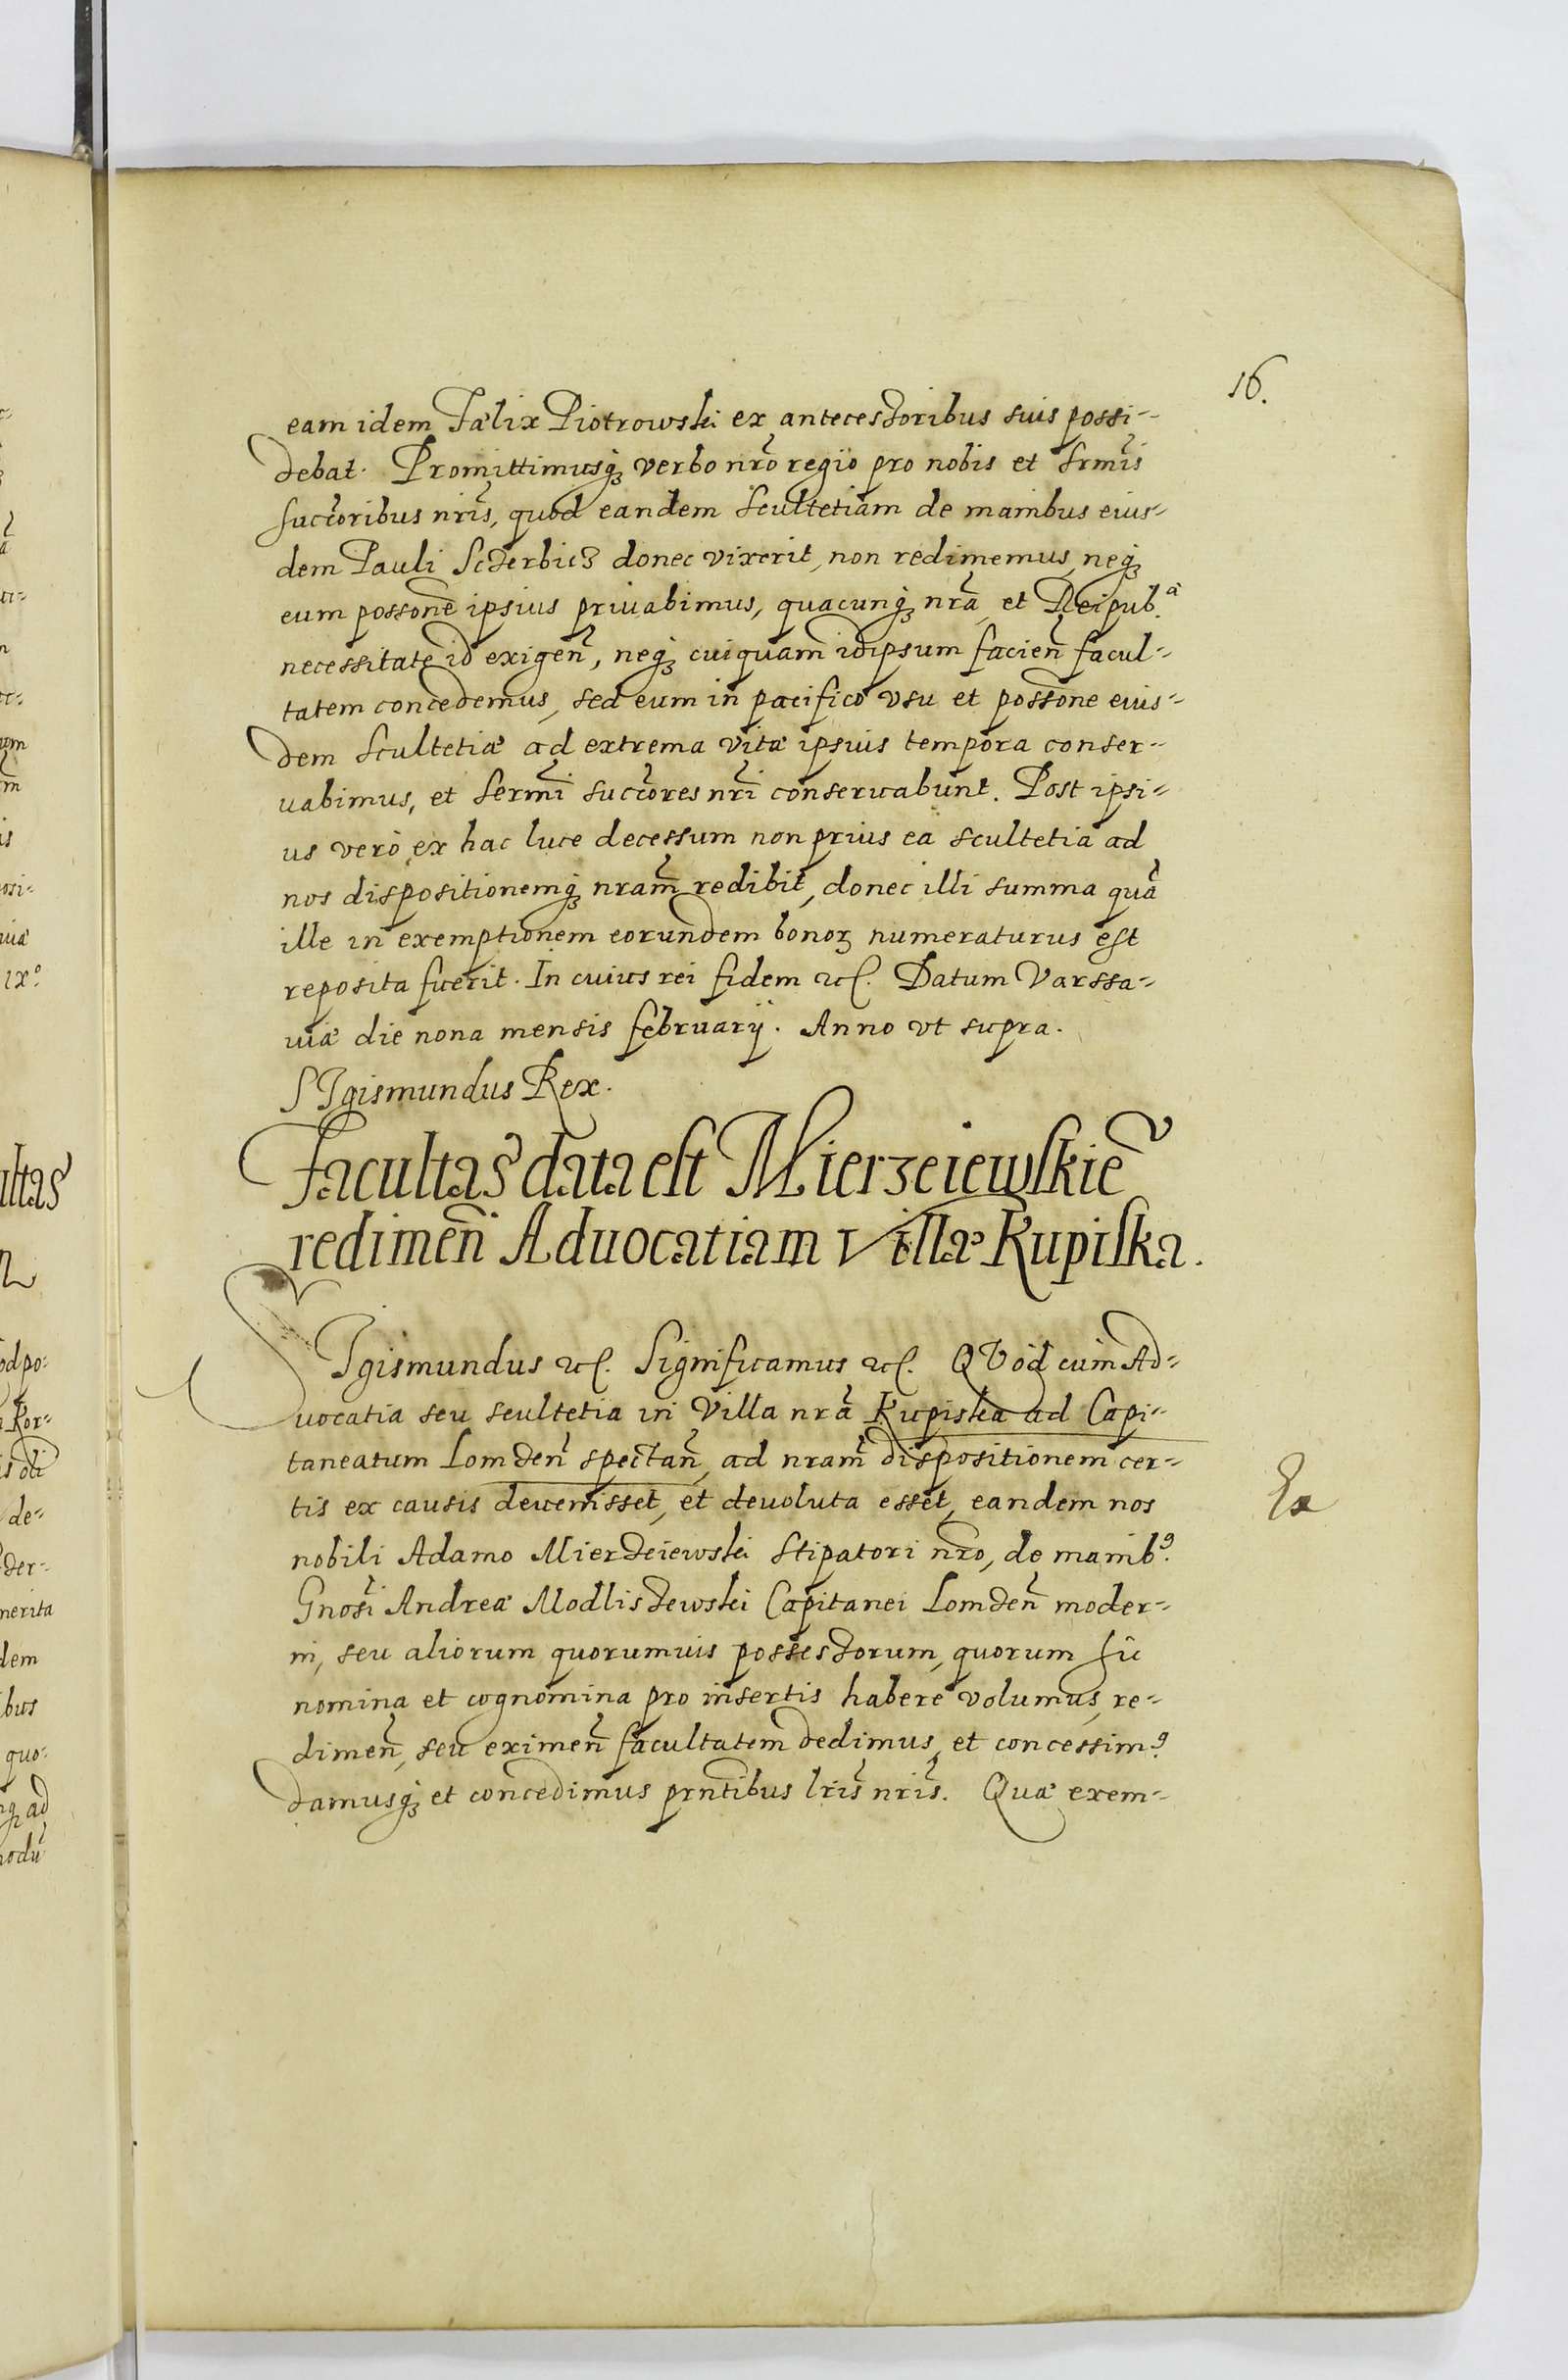 16.
eam idem Fælix Piotrowski ex antecessoribus suis possi-
debat. Promittimusq₃ verbo nrō regio pro nobis et Srmīs
succ̄oribus nrīs, quod eandem scultetiam de manibus eius-
dem Pauli Sczerbicz donec vixerit, non redimemus, neq₃
eum possonē ipsius priuabimus, quacunq₃ nrā et Reipub.ᵃ
necessitate id exigen̄, neq₃ cuiquam idipsum facien̄ facul-
tatem concedemus, sed eum in pacifico vsu et possone eius-
dem scultetiæ ad extrema vitæ ipsius tempora conser-
uabimus, et Sermī succ̄ores nrī conseruabunt. Post ipsi-
us vero ex hac luce decessum non prius ea scultetia ad
nos dispositionemq₃ nram̄ redibit, donec illi summa quā
ille in exemptionem eorundem bonoꝝ numeraturus est
reposita fuerit. In cuius rei fidem ꝛc. Datum Varssa-
uiæ die nona mensis februarij. Anno vt supra.
SIgismundus Rex.
Facultas data est Mierzeiewskiē
redimen̄ Aduocatiam Villæ Kupiska.
SIgismundus ꝛc. Significamus ꝛc. QVod cum Ad-
uocatia seu scultetia in Villa nrā Kupiska ad Capi-
taneatum Lomzen̄ spectan̄, ad nram̄ dispositionem cer-
tis ex causis deuenisset, et deuoluta esset, eandem nos
nobili Adamo Mierzeiewski stipatori nrō, de manib⁹.
Gnosī Andreæ Modliszewski Capitanei Lomzen̄ moder-
ni, seu aliorum quorumuis possessorum, quorum hic
nomina et cognomina pro insertis habere volumus, re-
dimen̄, seu eximen̄ facultatem dedimus, et concessim⁹.
damusq₃ et concedimus prntibus lrīs nrīs. Quæ exem-